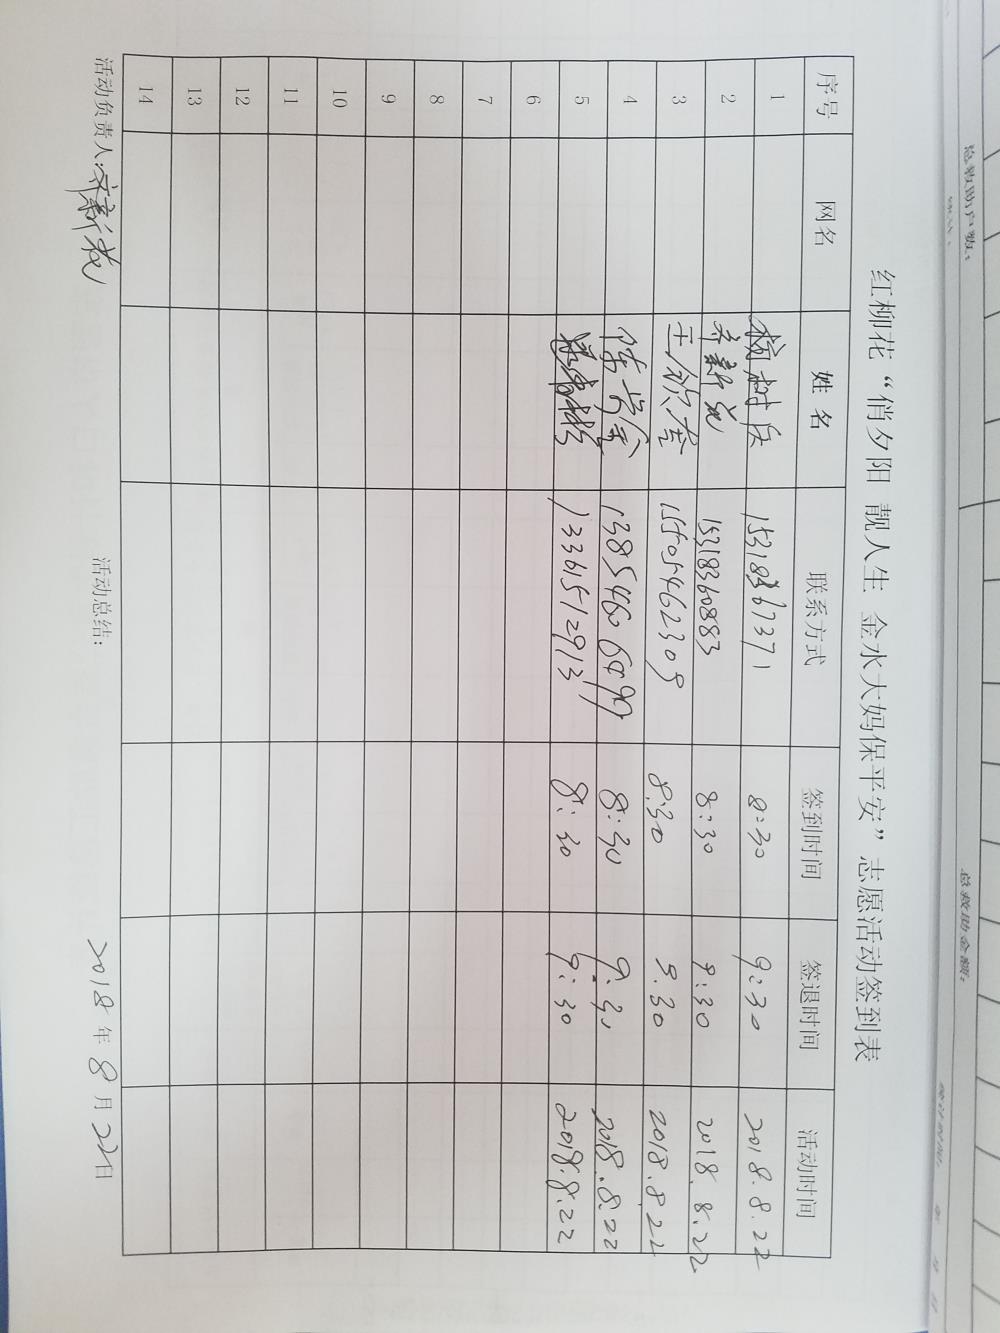 总救助户数：
总救助金额：
红柳花“俏夕阳 靓人生 金水大妈保平安”志愿活动签到表
序号 网名 姓名 联系方式 签到时间 签退时间 活动时间
1 8:30 9:30 2018.8.22
2 齐新花 15318360883 8:30 9:30 2018.8.22
3 王欣奎 15505462309 8:30 9.30 2018.8.22
4 8:30 9:30 2018.8.22
5 13361512913 8:30 9:30 2018.8.22
6
7
8
9
10
11
12
13
14
活动负责人:齐新花 活动总结： 2018年8月22日